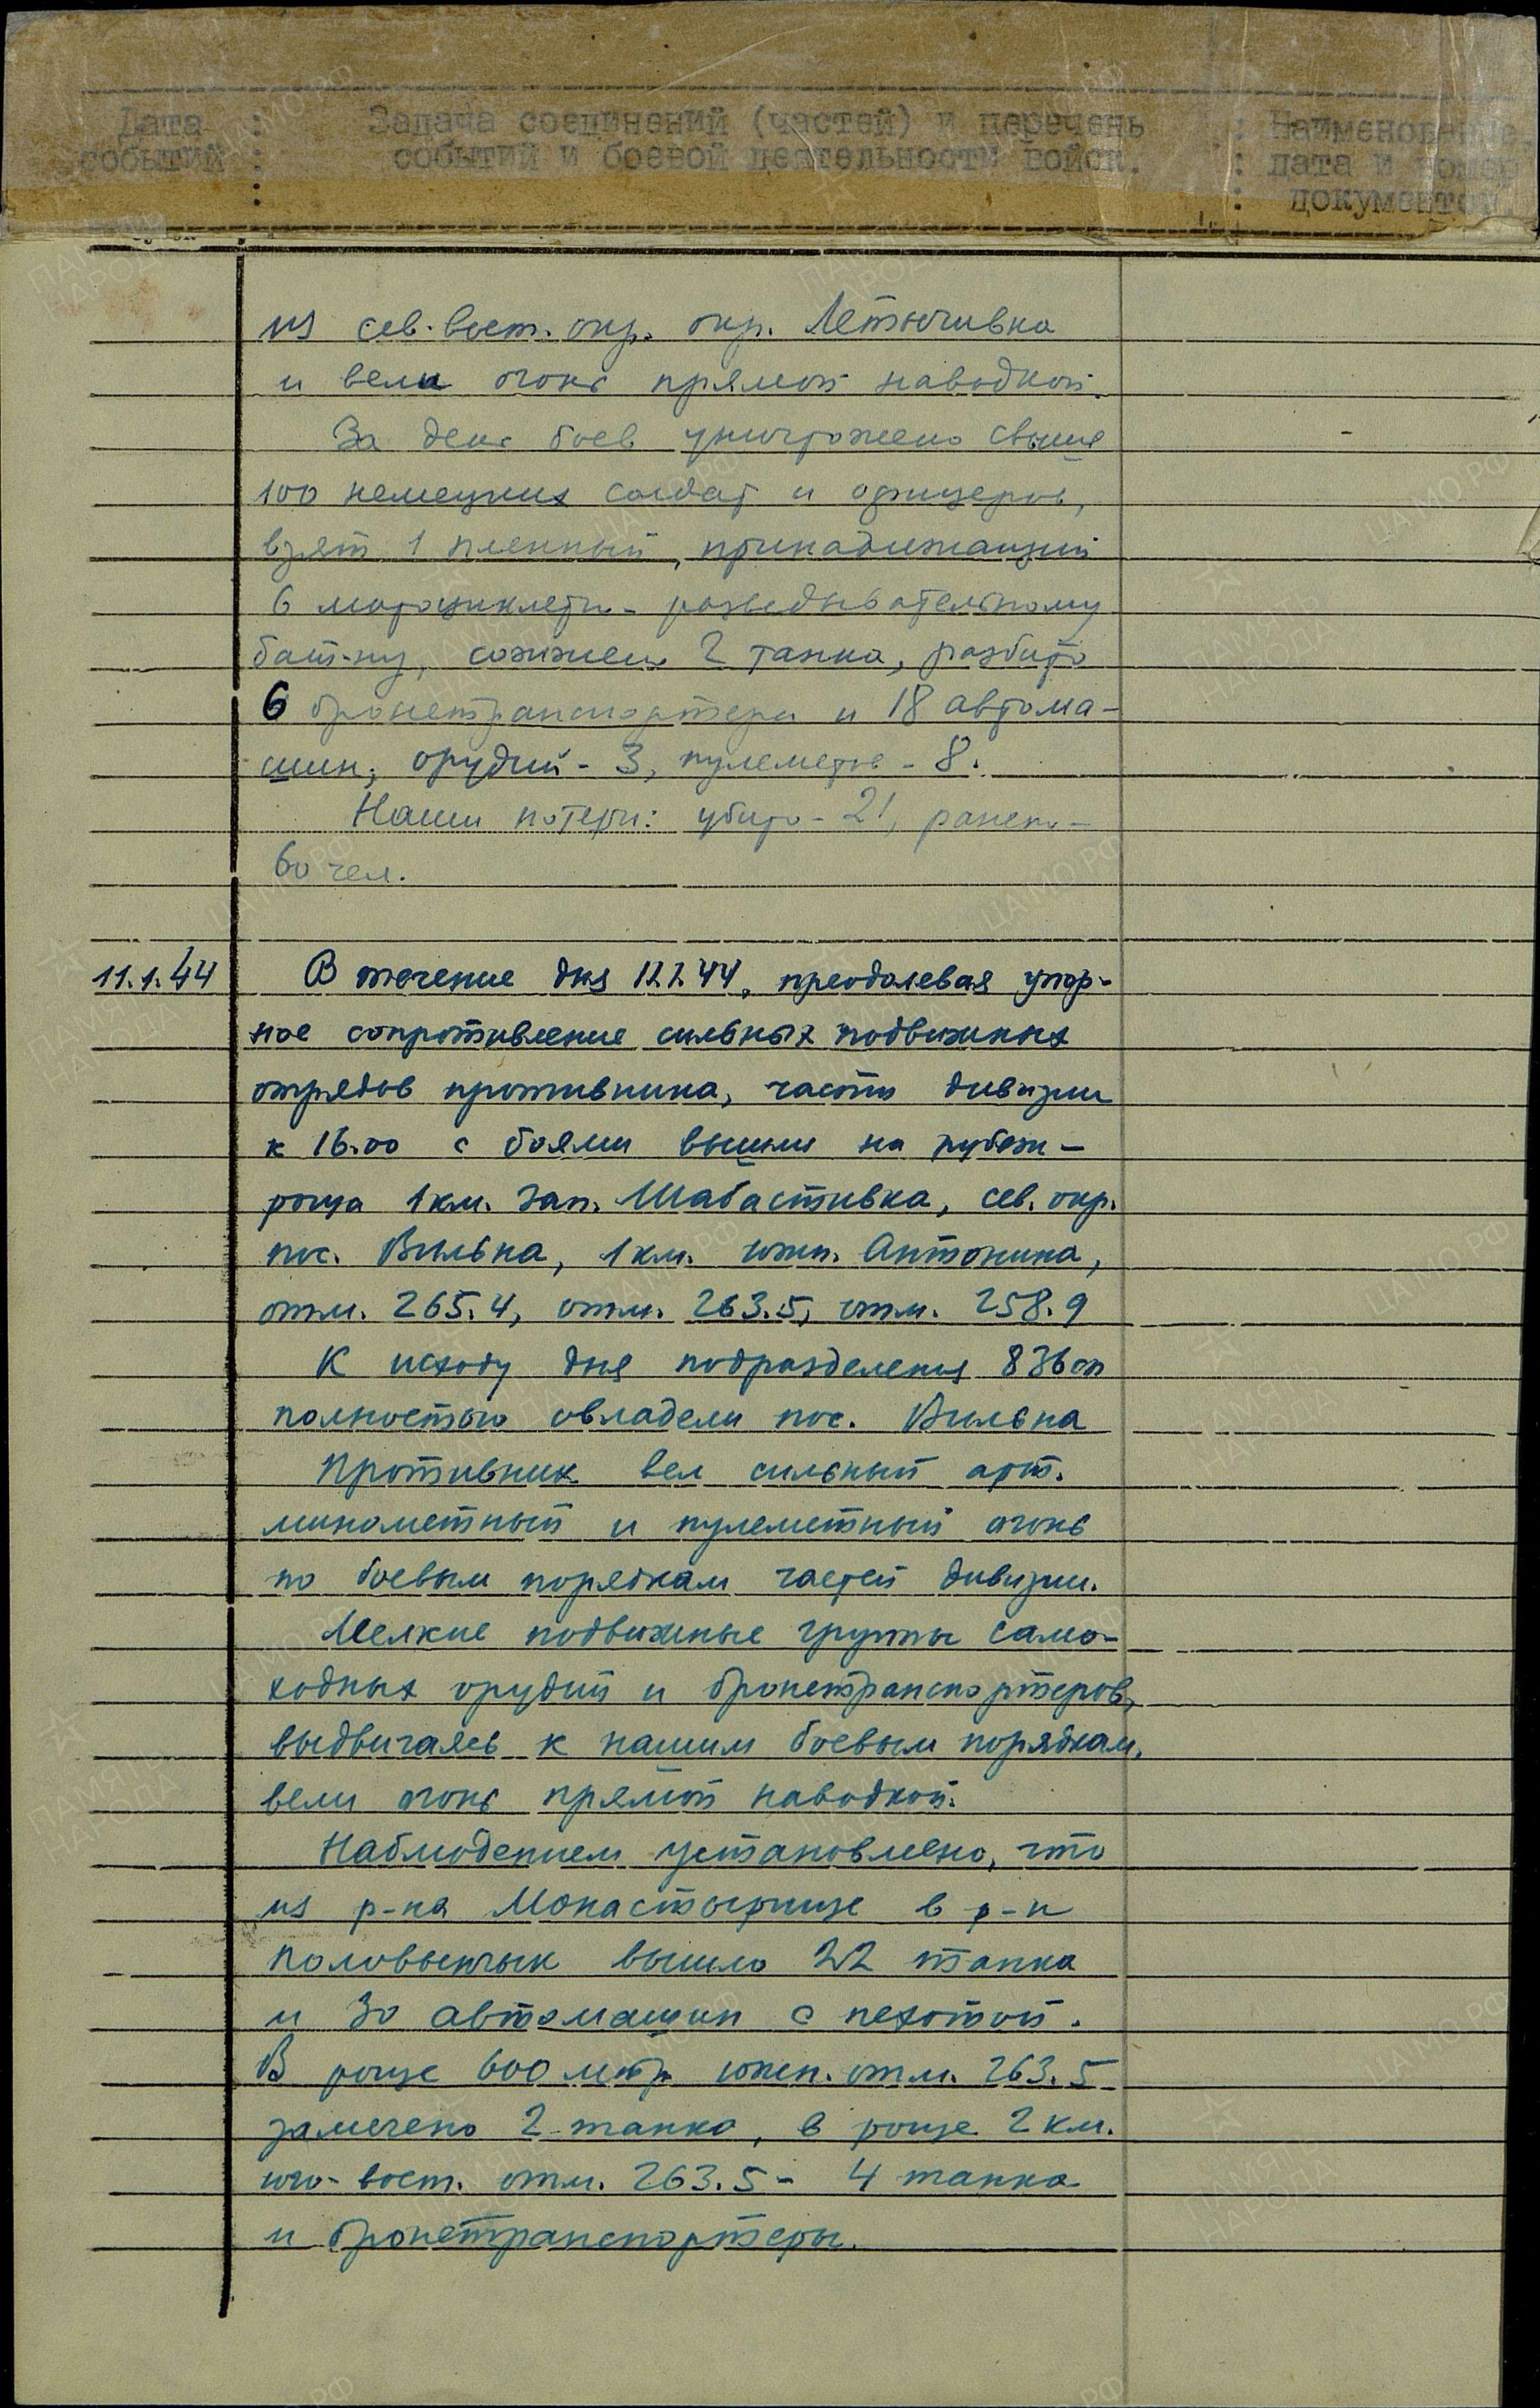 Дата событий : Задача соединений (частей) и перечень событий и боевой деятельности войск. : Наименование, дата и номер документов
из сев.-вост. окр. окр. Летычивка
и вели огонь прямой наводкой.
За день боев уничтожено свыше
100 немецких солдат и офицеров,
взят 1 пленный, принадлежащий
6 мотоциклетн- разведывательному
бат-ну, сожжено 2 танка, разбито
6 бронетранспортера и 18 автома-
шин, орудий - 3, пулеметов - 8.
Наши потери: убито - 21, ранено -
60 чел.
11.1.44 В течение дня 11.1.44, преодолевая упор-
ное сопротивление сильных подвижных
отрядов противника, части дивизии
к 16.00 с боями вышли на рубеж -
роща 1 км. зап. Шабастивка, сев. окр.
пос. Вильна, 1 км. южн. Антонина,
отм. 265.4, отм. 263.5, отм. 258.9
К исходу дня подразделения 836 сп
полностью овладели пос. Вильна
Противник вел сильный арт.
минометный и пулеметный огонь
по боевым порядкам частей дивизии.
Мелкие подвижные группы само-
ходных орудий и бронетранспортеров,
выдвигаясь к нашим боевым порядкам,
вели огонь прямой наводкой.
Наблюдением установлено, что
из р-на Монастырище в р-н
Половынчык вышло 22 танка
и 30 автомашин с пехотой.
В роще 600 метр южн. отм. 263.5
замечено 2 танка, в роще 2 км.
юго-вост. отм. 263.5 - 4 танка
и бронетранспортеры.